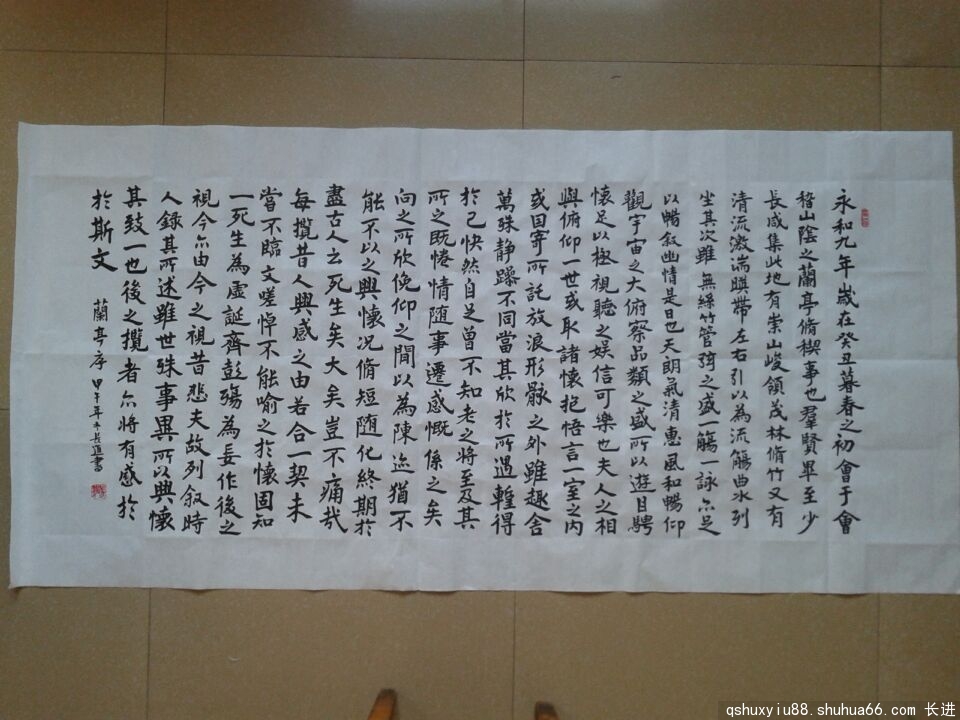 永和九年歲在癸丑暮春之初會于會
稽山陰之蘭亭脩稧事也羣賢畢至少
長咸集此地有崇山峻領茂林脩竹又有
清流激湍暎帶左右引以為流觴曲水列
坐其次雖無絲竹管弦之盛一觴一詠亦足
以暢敘幽情是日也天朗氣清惠風和暢仰
觀宇宙之大俯察品類之盛所以遊目騁
懷足以極視聽之娛信可樂也夫人之相
與俯仰一世或取諸懷抱悟言一室之內
或因寄所託放浪形骸之外雖趣舍
萬殊静躁不同當其欣於所遇暫得
於己快然自足曾不知老之將至及其
所之既惓情隨事遷感慨係之矣
向之所欣俛仰之間以為陳迹猶不
能不以之興懷况脩短隨化終期於
盡古人云死生矣大矣豈不痛哉
每攬昔人興感之由若合一契未
嘗不臨文嗟悼不能喻之於懷固知
一死生為虛誕齊彭殤為妄作後之
視今亦由今之視昔悲夫故列敘時
人錄其所述雖世殊事異所以興懷
其致一也後之攬者亦將有感於
於斯文
蘭亭序 甲午年 長進書
qshuxyiu88.shuhua66.com 长进